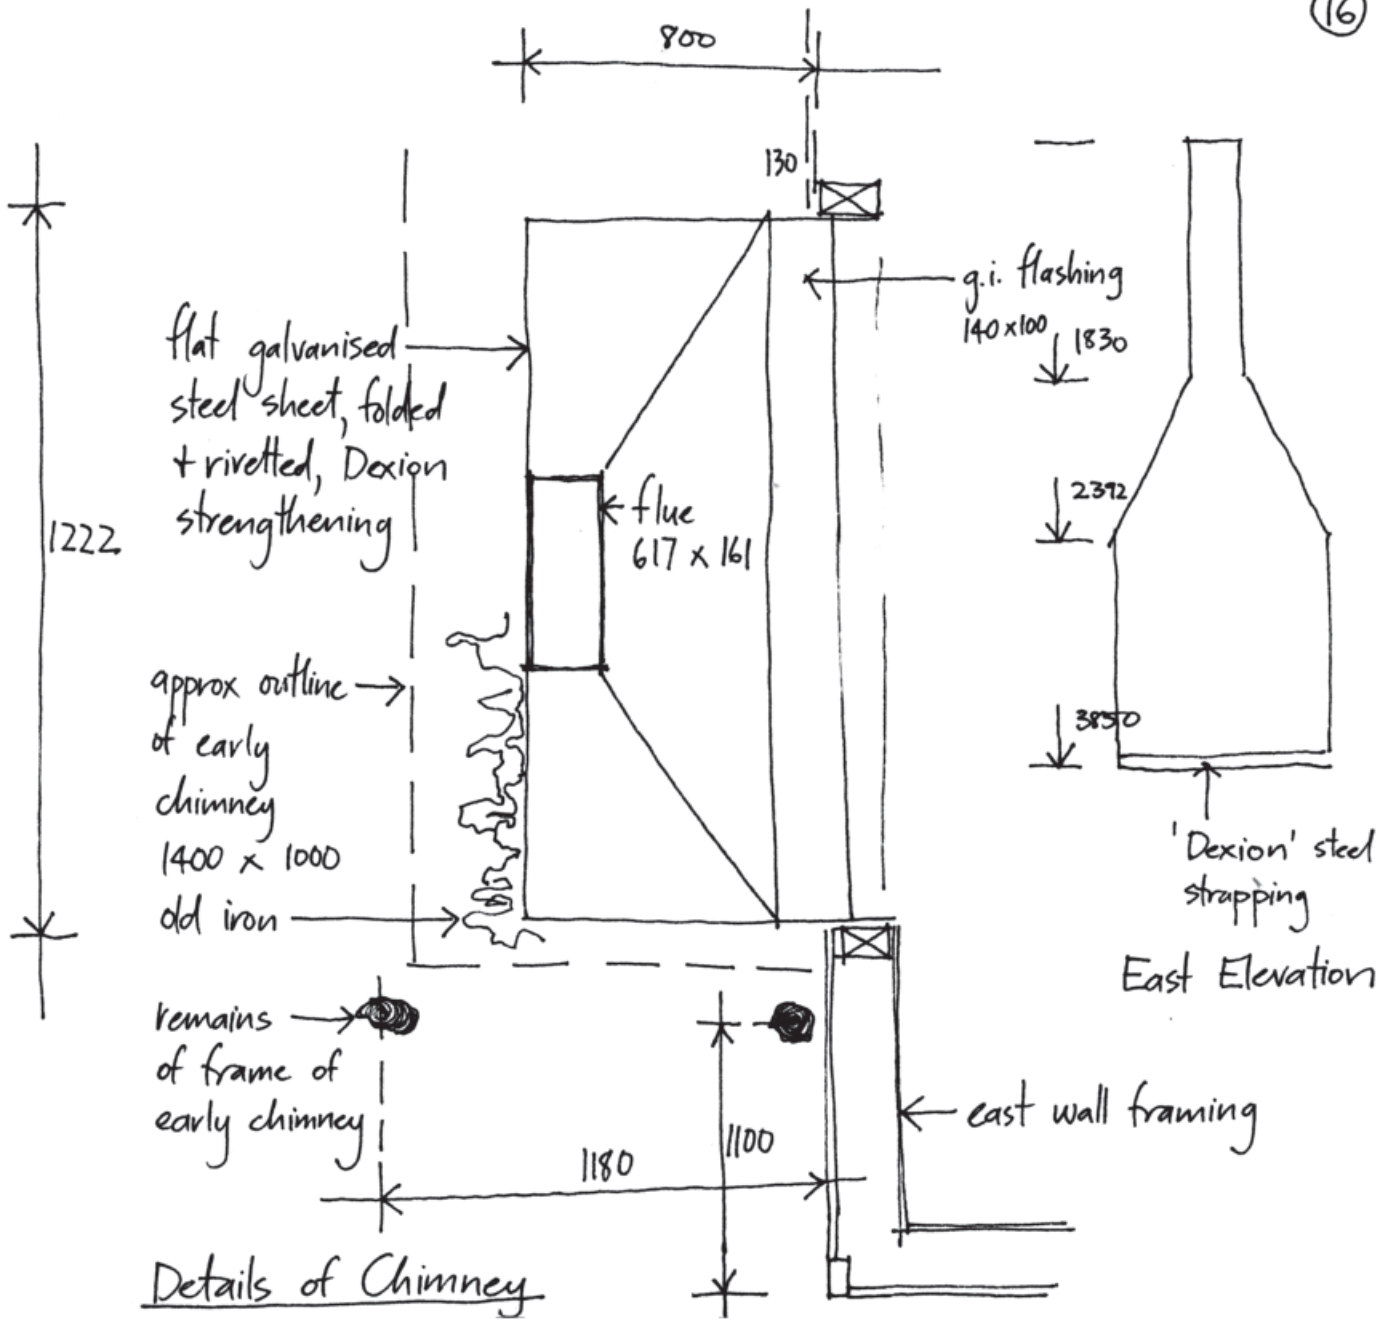 16
800
130
g.i. flashing
140x100
1830
flat galvanised
steel sheet, folded
+ rivetted, Dexion
strengthening
2392
flue
617 x 161
1222
approx outline
of early
chimney
1400 x 1000
old iron
3850
'Dexion' steel
strapping
East Elevation
remains
of frame of
early chimney
east wall framing
1100
1180
Details of Chimney